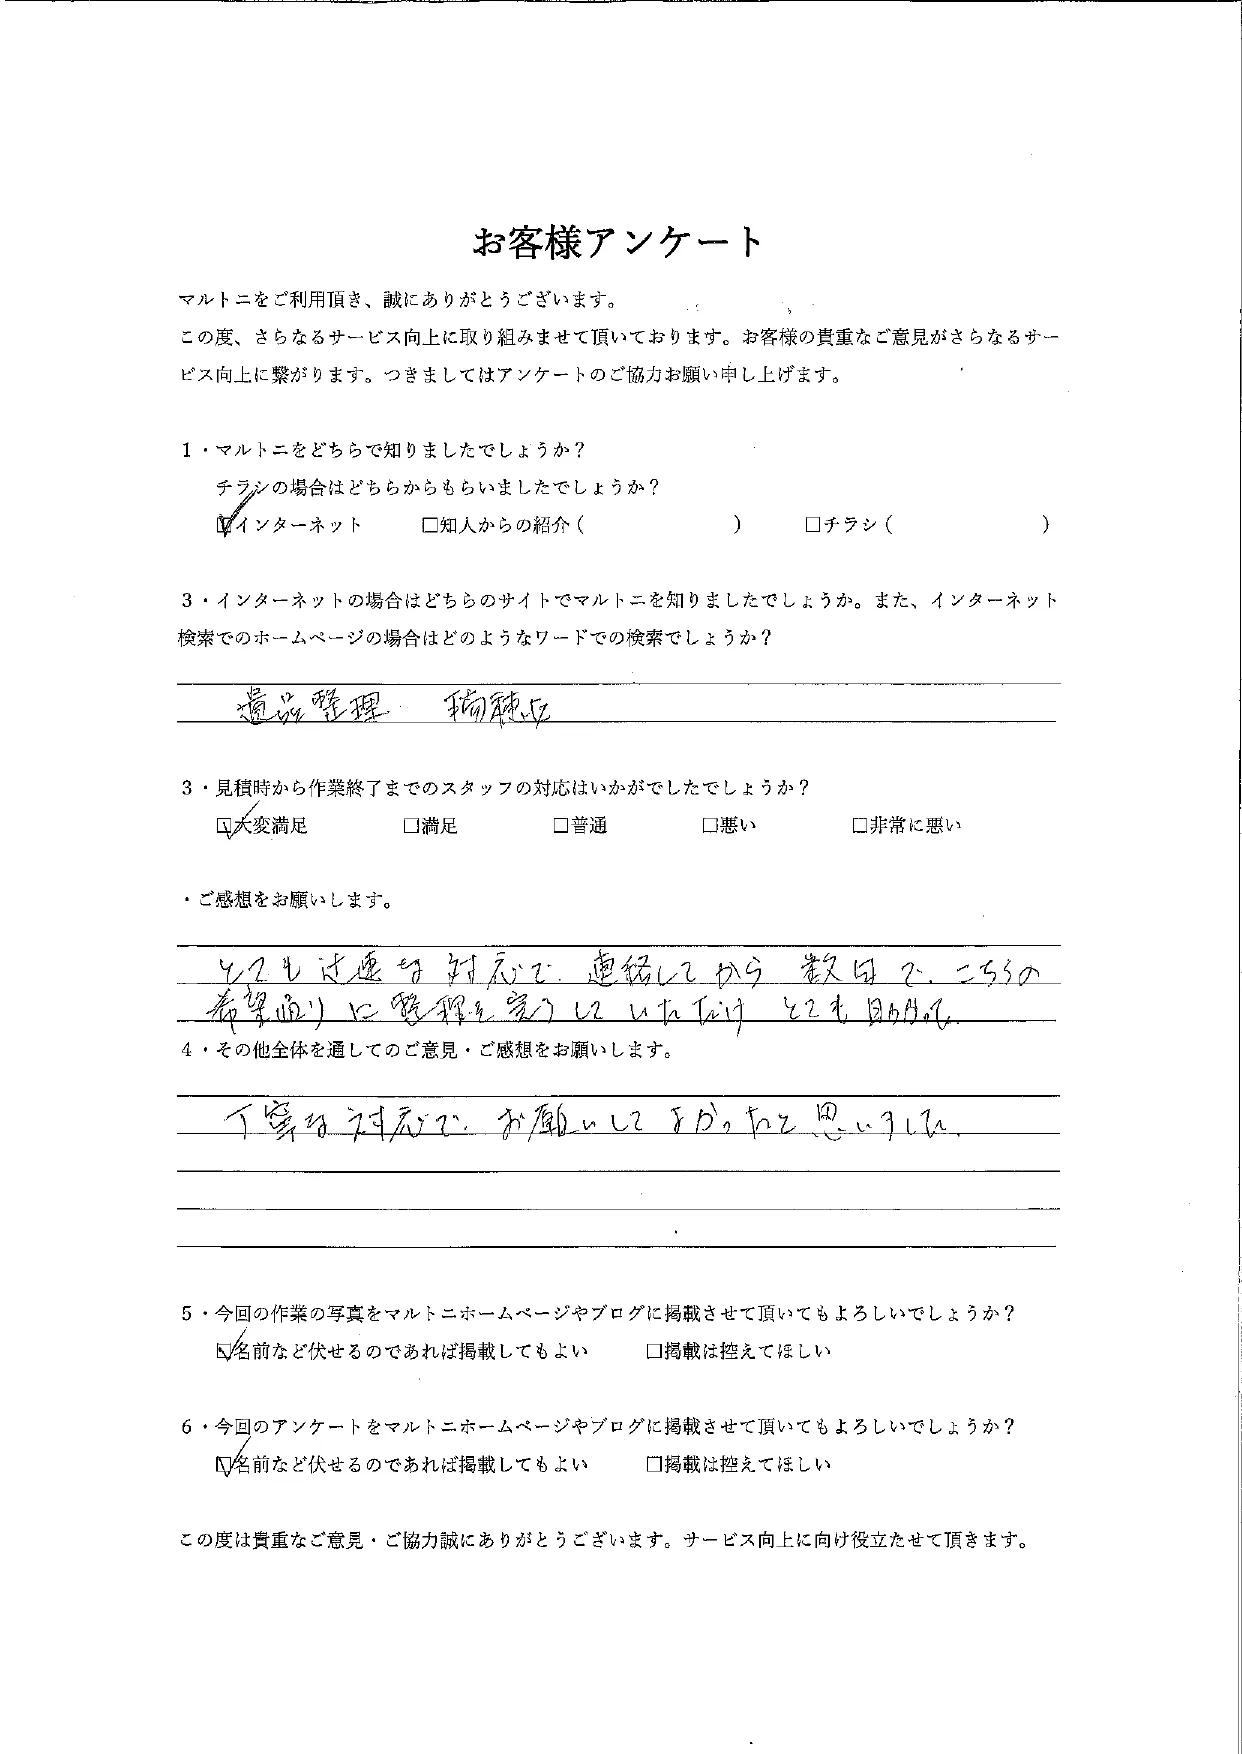 お客様アンケート
マルトニをご利用頂き、誠にありがとうございます。
この度、さらなるサービス向上に取り組みませて頂いております。お客様の貴重なご意見がさらなるサー
ビス向上に繋がります。つきましてはアンケートのご協力お願い申し上げます。
1・マルトニをどちらで知りましたでしょうか？
チラシの場合はどちらからもらいましたでしょうか？
☑インターネット □知人からの紹介（ ） □チラシ（ ）
3・インターネットの場合はどちらのサイトでマルトニを知りましたでしょうか。また、インターネット
検索でのホームページの場合はどのようなワードでの検索でしょうか？
遺品整理 稲穂区
3・見積時から作業終了までのスタッフの対応はいかがでしたでしょうか？
☑大変満足 □満足 □普通 □悪い □非常に悪い
・ご感想をお願いします。
とても迅速な対応で、連絡してから数日で、こちらの
希望通りに整理を完了していただけ とても
4・その他全体を通してのご意見・ご感想をお願いします。
丁寧な対応で、お願いしてよかったと思いました。
5・今回の作業の写真をマルトニホームページやブログに掲載させて頂いてもよろしいでしょうか？
☑名前など伏せるのであれば掲載してもよい □掲載は控えてほしい
6・今回のアンケートをマルトニホームページやブログに掲載させて頂いてもよろしいでしょうか？
☑名前など伏せるのであれば掲載してもよい □掲載は控えてほしい
この度は貴重なご意見・ご協力誠にありがとうございます。サービス向上に向け役立たせて頂きます。